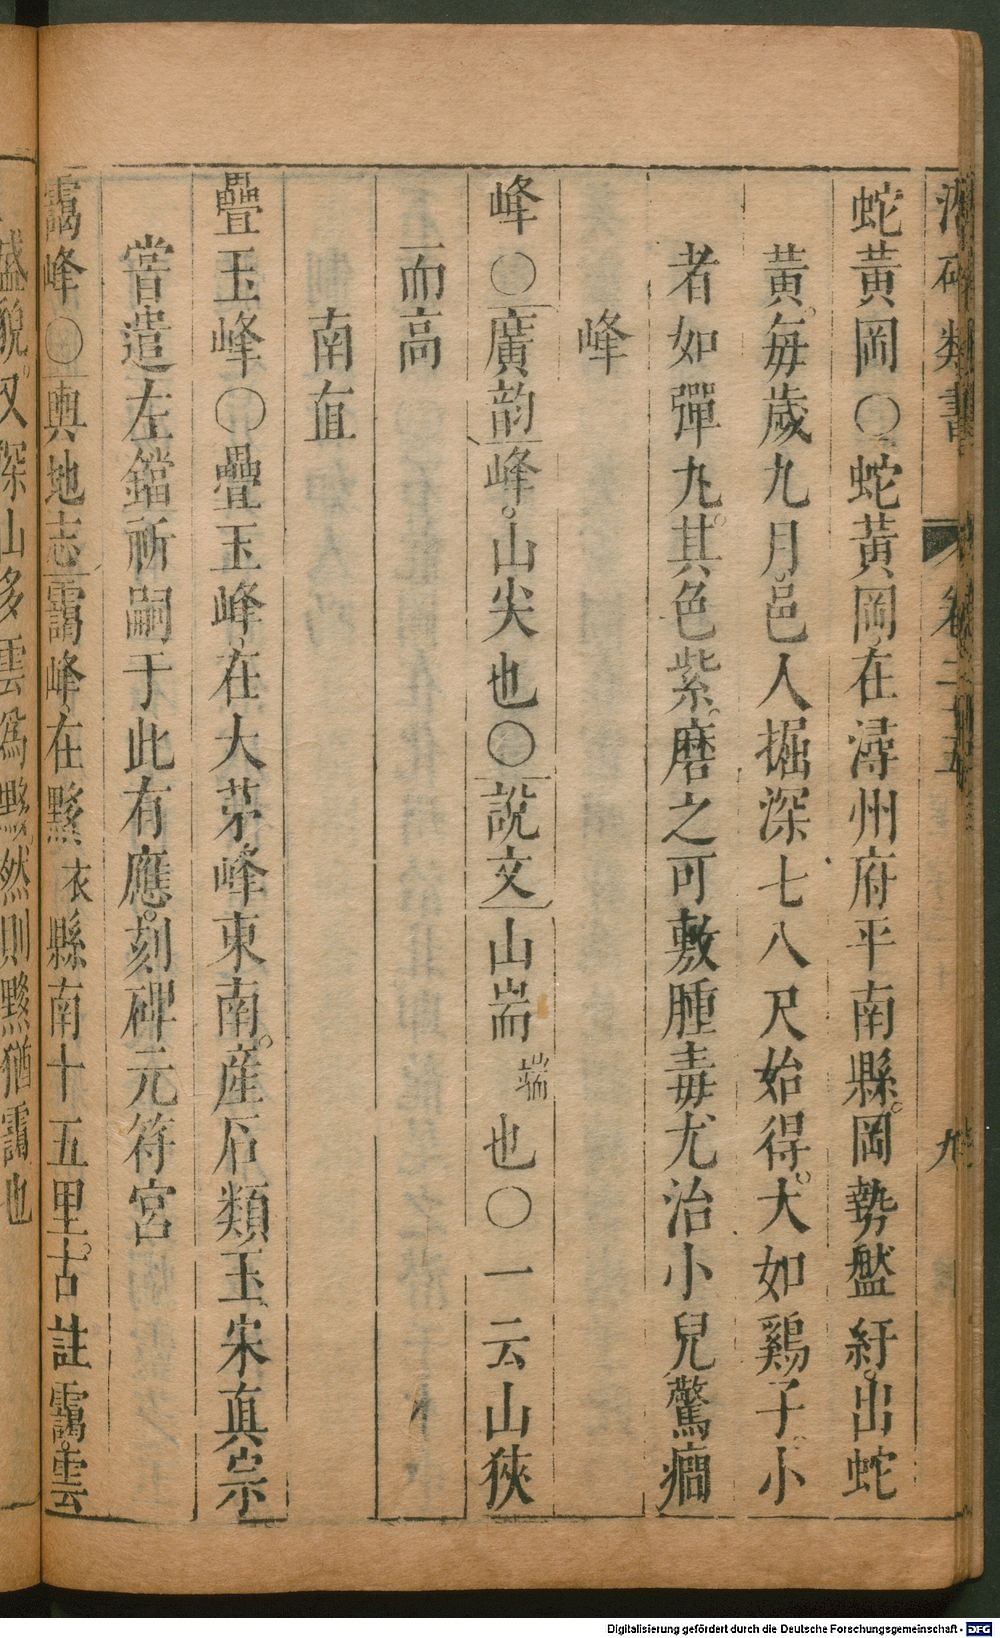 類書 卷二十五 九
蛇黃岡〇蛇黃岡在潯州府平南縣岡勢盤紆出蛇
黃每歲九月邑人掘深七八尺始得大如鷄子小
者如彈丸其色紫磨之可敷腫毒尤治小兒驚癇
峰
峰〇廣韵峰山尖也〇說文山耑端也〇一云山狹
而高
南直
疊玉峰〇疊玉峰在大茅峰東南産石類玉宋真宗
嘗遣左鐺祈嗣于此有應刻碑元符宮
靄峰〇輿地志靄峰在黟衣縣南十五里古註靄雲
盛貌又深山多雲為黟然則黟猶靄也
Digitalisierung gefördert durch die Deutsche Forschungsgemeinschaft - DFG